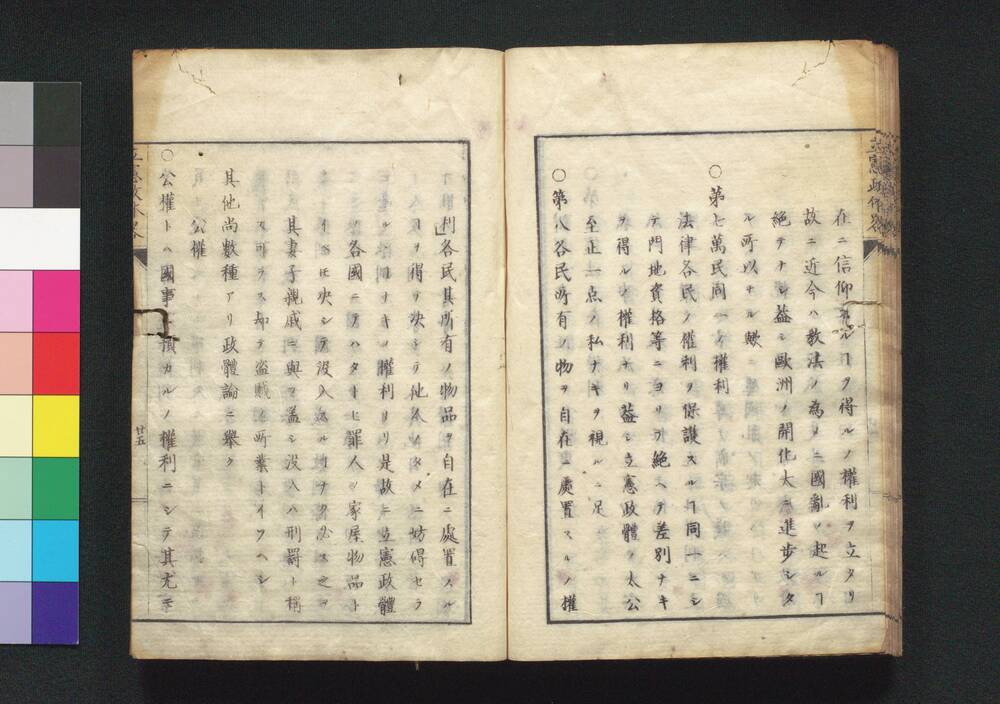 立憲政体略
在ニ信仰スルヿヲ得ルノ權利ヲ立タリ
故ニ近今ハ教法ノ為メニ國亂ノ起ルヿ
絶テナシ蓋シ歐洲ノ開化大ニ進歩シタ
ル所以ナル歟
○第七萬民同一ノ權利
法律各民ノ權利ヲ保護スルヿ同一ニシ
テ門地貴格等ニヨリテ絶ヘテ差別ナキ
ヲ得ルノ權利ナリ蓋シ立憲政體ノ太公
至正一点ノ私ナキヲ視ルニ足
○第八各民所有ノ物ヲ自在ニ處置スルノ權
利各民其所有ノ物品ヲ自在ニ處置スル
ヲ得テ決シテ他人ノタメニ妨碍セラ
ルヿナキノ權利ナリ是故ニ立憲政體
各國ニテハタトヒ罪人ノ家屋物品ト
イヘ𪜈決シテ没入スルヿナク必ス之ヲ
其妻子親戚ニ與フ蓋シ没入ハ刑罰ト稱
ス可ラス却テ盗賊ノ所業トイフヘシ
其他尚數種アリ政體論ニ擧ク
公權
○公權トハ國事ニ預カルノ權利ニシテ其尤
廿五